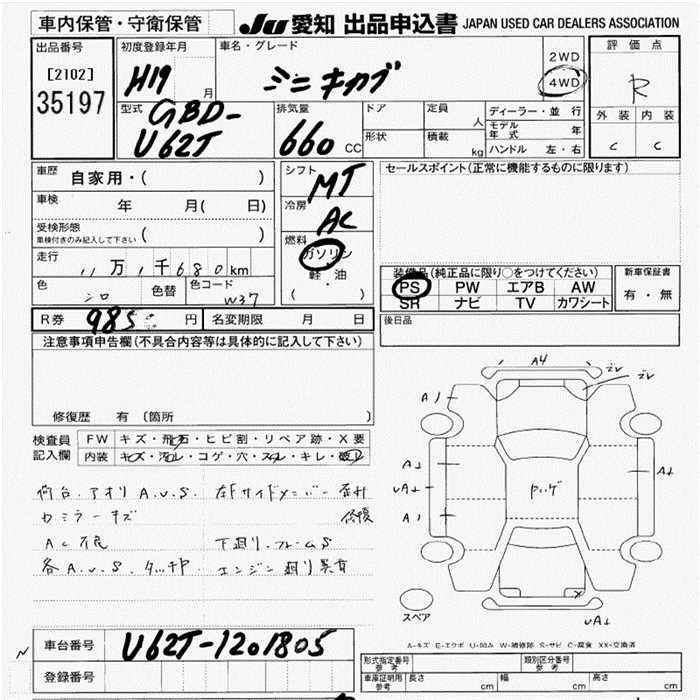 車内保管・守衛保管
JU 愛知 出品申込書 JAPAN USED CAR DEALERS ASSOCIATION
出品番号
[2102]
35197
初度登録年月
H19 月
車名・グレード
ミニキャブ
2WD
4WD
評価点
R
外装 内装
C C
型式
GBD-
U62T
排気量
660 CC
ドア
定員 人
形状
積載 kg
ディーラー・並行
モデル年式 年
ハンドル 左・右
車歴 自家用・( )
車検 年 月( 日)
受検形態
車検付きのみ記入して下さい ( )
走行 11万1千680km
色 シロ 色替 色コード W37
シフト MT
冷房 AC
燃料
ガソリン
軽・油
( )
セールスポイント(正常に機能するものに限ります)
装備品(純正品に限り○をつけてください)
PS PW エアB AW
SR ナビ TV カワシート
新車保証書
有・無
R券 985 円 名変期限 月 日
後日品
注意事項申告欄(不具合内容等は具体的に記入して下さい)
修復歴 有 〔箇所
検査員 記入欄
FW キズ・飛石・ヒビ割・リペア跡・X要
内装 キズ・汚レ・コゲ・穴・スレ・キレ・破レ
荷台、アオリ A.U.S. 左Fサイドメンバー
カミラーキズ 修復
AC不良 下廻り、フレームS
各A.U.S. タッチP エンジン廻り異音
A4
A1
A↓
UA↓
A1
A↓
UA↓
スペア
A-キズ E-エクボ U-凹み W-補修跡 S-サビ C-腐食 XX-交換済
車台番号 U62T-1201805
登録番号
形式指定番号 参考
類別区分番号 参考
車庫証明用 参考 長さ cm 幅 cm 高さ cm